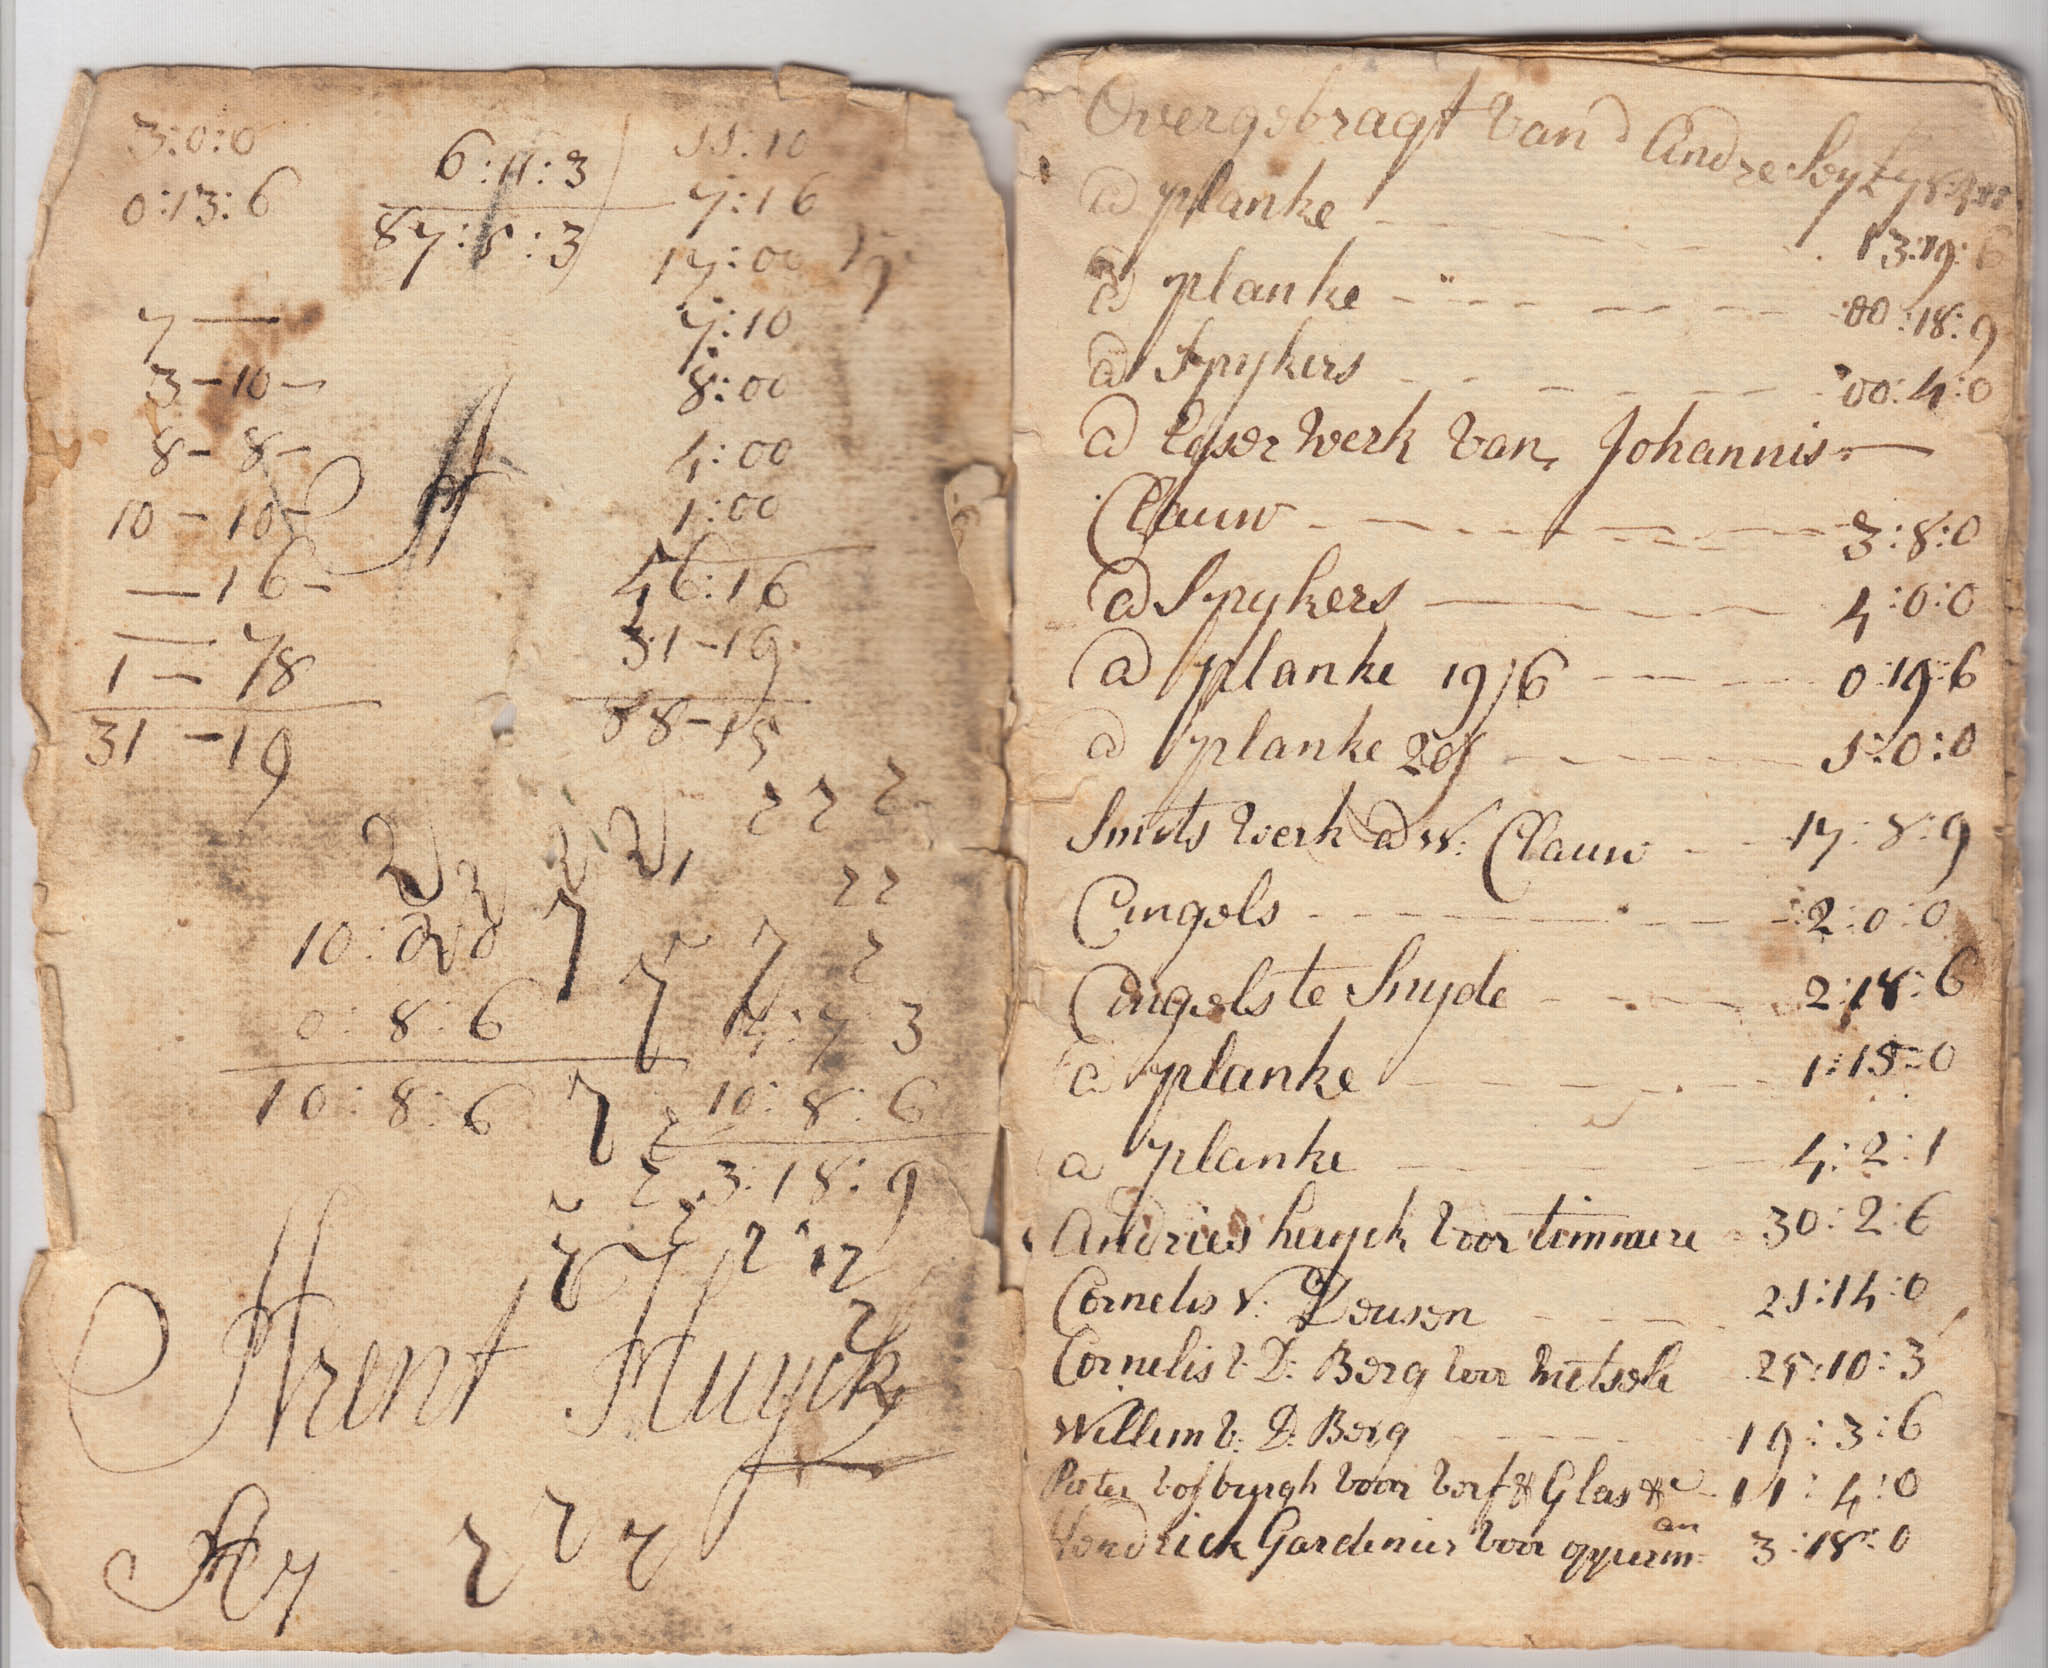 3:0:0
0:13:6
6:11:3
87:5:3
11:10
7:16
17:00
7:10
8:00
4:00
1:00
46:16
31-19
88-15
7 —
3-10-
8-8-
10-10-
— 16-
1 - 18
31-19
2 2 2
2 2
2
10:00
0:8:6
10:8:6
14:7:3
10:8:6
3:18:9
Arent Huyck
AH
2 2 2
Overgebragt van Andre
@ planke - - - 13:19:6
@ planke - - - 00:18:9
@ Spykers - - - 00:4:0
@ Eyser Werk van Johannis
Clauw - - - 3:8:0
@ Spykers - - - 4:0:0
@ planke 19/6 - - - 0:19:6
@ planke 20/ - - - 1:0:0
Smits Werk @ W. Clauw - - 17:8:9
Cingels - - - 2:0:0
Cingels te Snyde - - - 2:18:6
@ planke - - - 1:15:0
a planke - - - 4:2:1
Andries huyck voor timmere - 30:2:6
Cornelis V. Deusen - - - 21:14:0
Cornelis V. D: Berg voor metsele 25:10:3
Willem V. D: Berg - - - 19:3:6
Pieter vosburgh voor verf & Glas &c - 11:4:0
Hendrick Gardenier voor opperman 3:18:0